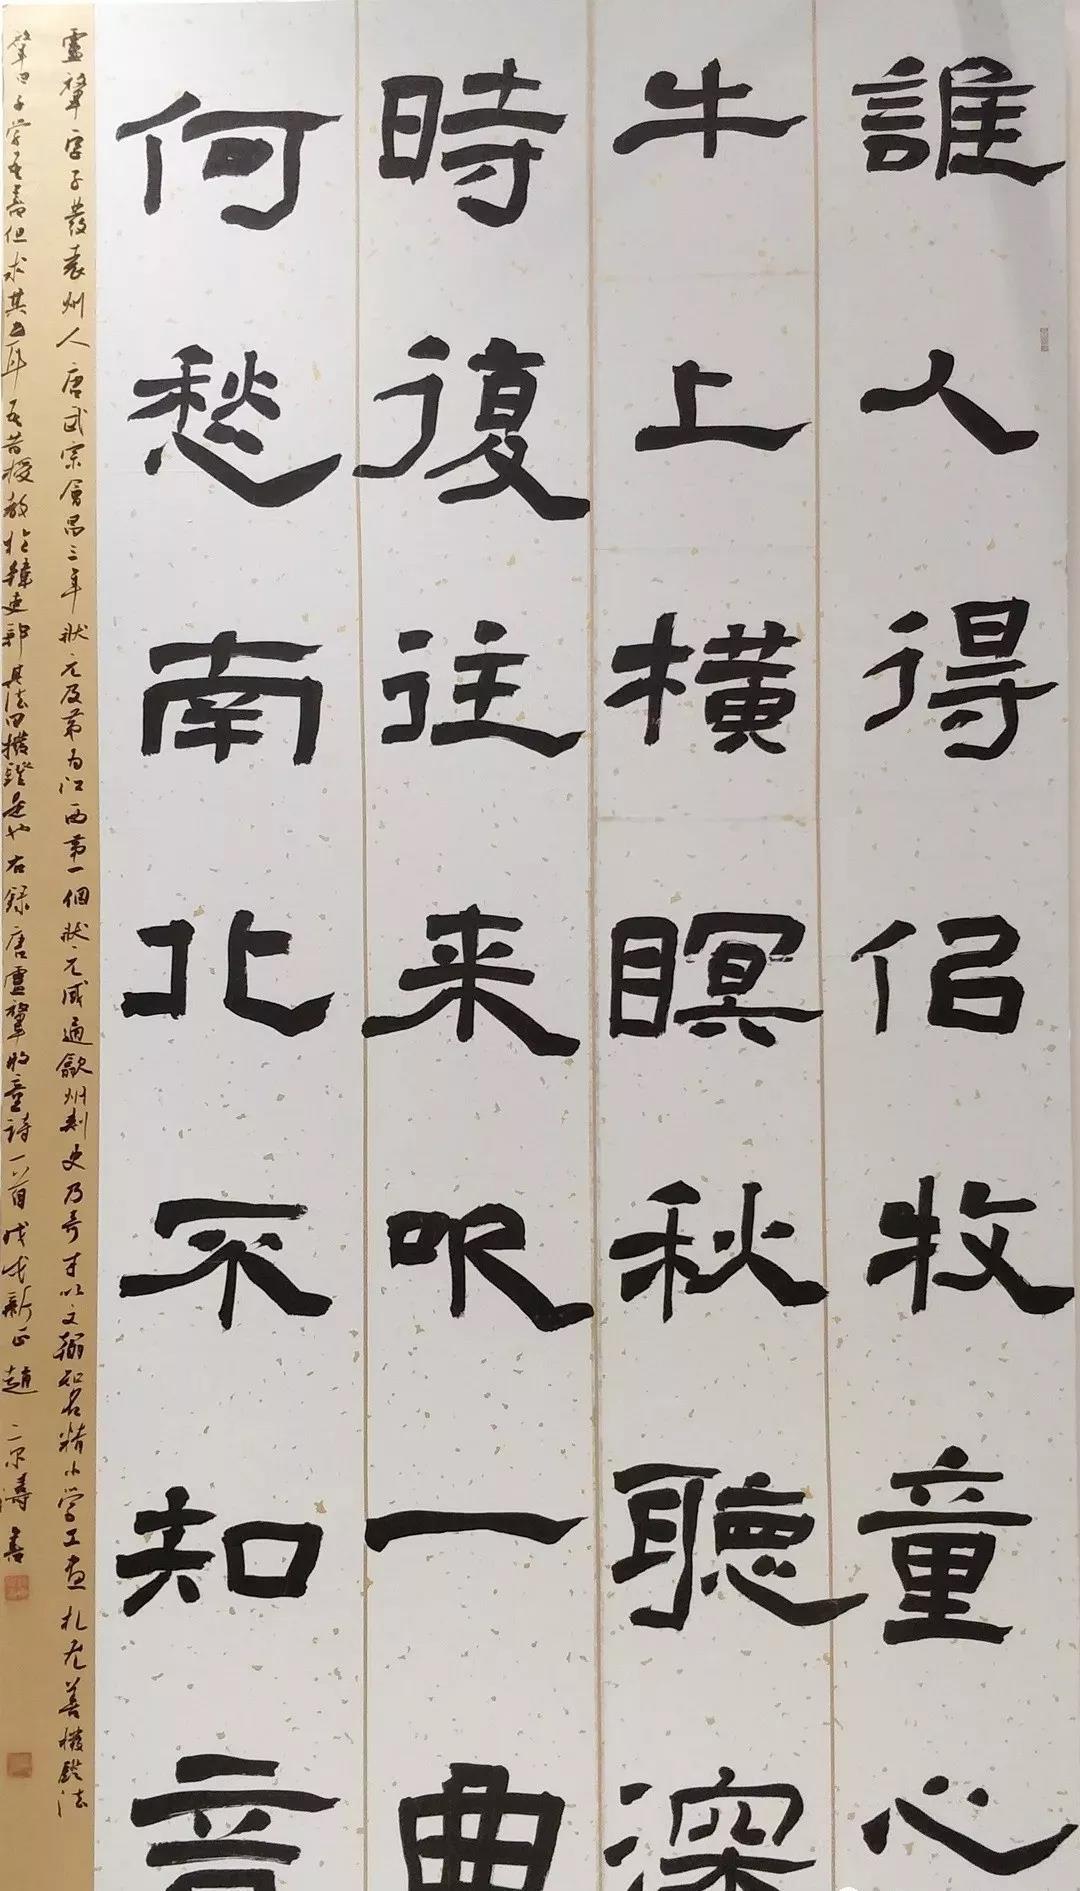 誰人得佀牧童心
牛上橫瞑秋聽深
時復往来吹一曲
何愁南北不知音
盧肇字子發袁州人唐武宗會昌三年狀元及第為江西第一個狀元咸通歙州刺史乃奇才以文翰知名精小學工書札尤善撥鐙法
肇曰子學吾書但求其力耳吾昔授教於韓吏部其法曰撥鐙是也右錄唐盧肇牧童詩一首戊戌新正趙